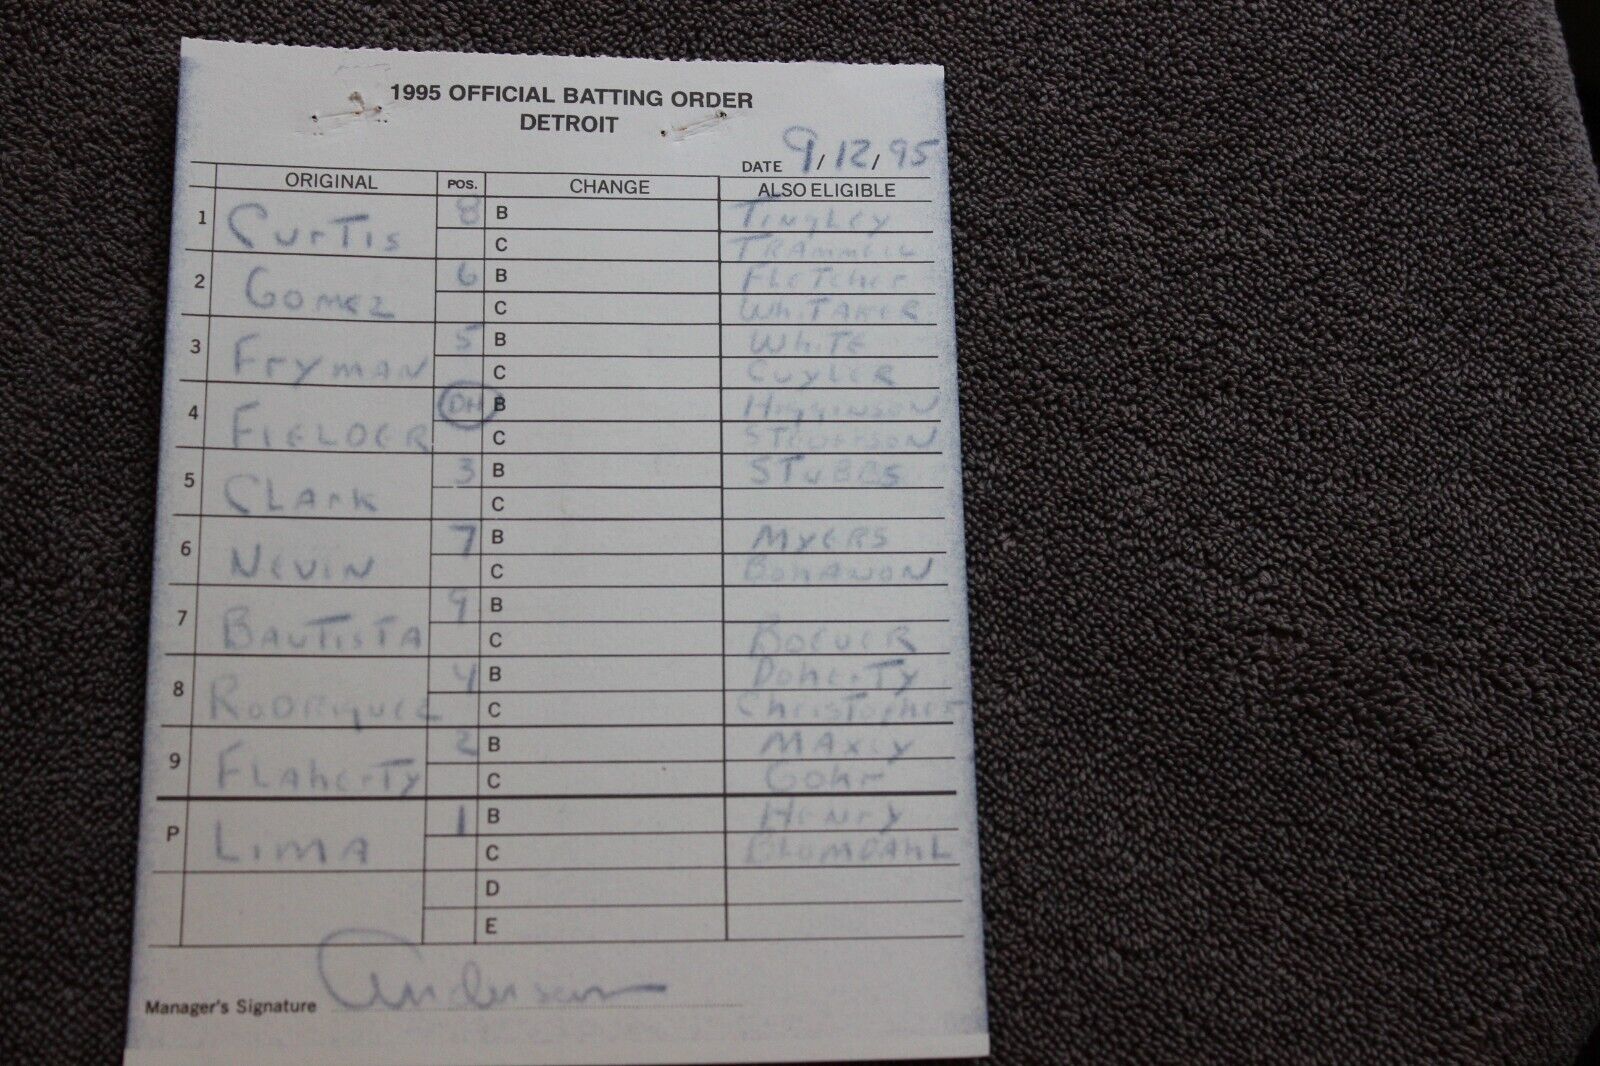 1995 OFFICIAL BATTING ORDER
DETROIT
DATE 9/12/95
ORIGINAL POS. CHANGE ALSO ELIGIBLE
1 Curtis 8 B Tingley
C Trammell
2 Gomez 6 B Fletcher
C Whitaker
3 Fryman 5 B White
C Cuyler
4 Fielder DH B Higginson
C Steverson
5 Clark 3 B Stubbs
C
6 Nevin 7 B Myers
C Bohanon
7 Bautista 9 B
C Boever
8 Rodriguez 4 B Doherty
C Christopher
9 Flaherty 2 B Maxcy
C Gohr
P Lima 1 B Henry
C Blomdahl
D
E
Manager's Signature Anderson